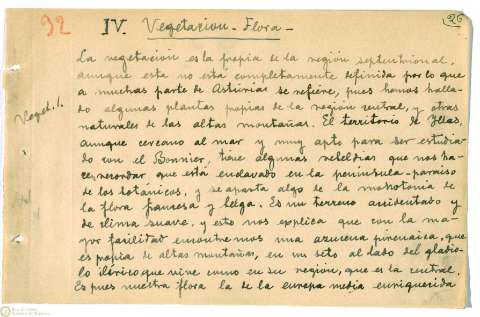 92 IV. Vegetacion - Flora - 26
La vegetación es la propia de la región septentrional,
aunque esta no está completamente definida por lo que
a muchas parte de Asturias se refiere, pues hemos halla-
Veget. 1.
do algunas plantas propias de la región central, y otras
naturales de las altas montañas. El territorio de Illas,
aunque cercano al mar y muy apto para ser estudia-
do con el Bonnier, tiene algunas rebeldias que nos ha-
cen recordar que está enclavado en la península-paraiso
de los botánicos, y se aparta algo de la monotonia de
la flora francesa y belga. Es un terreno accidentado y
de clima suave, y esto nos explica que con la ma-
yor facilidad encontremos una azucena pirenaica, que
es propia de altas montañas, en un sitio al lado del gladio-
lo ilírico que vive como en su región, que es la central.
Es pues nuestra flora la de la europa media enriquecida